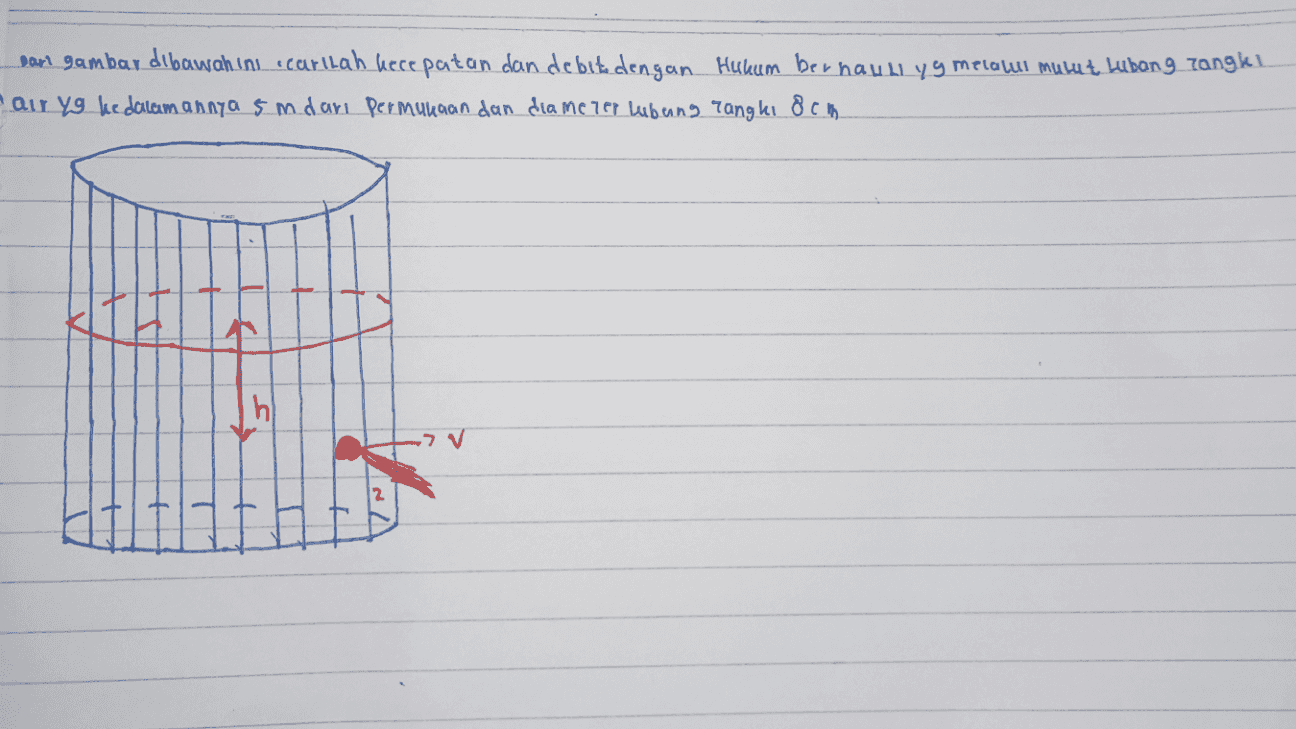 Dari gambar dibawah ini . carilah kecepatan dan debit dengan Hukum bernauli yg melalui mulut lubang Tangki
air yg kedalamannya 5 m dari Permukaan dan diameter lubang Tangki 8 cm
h
v
2